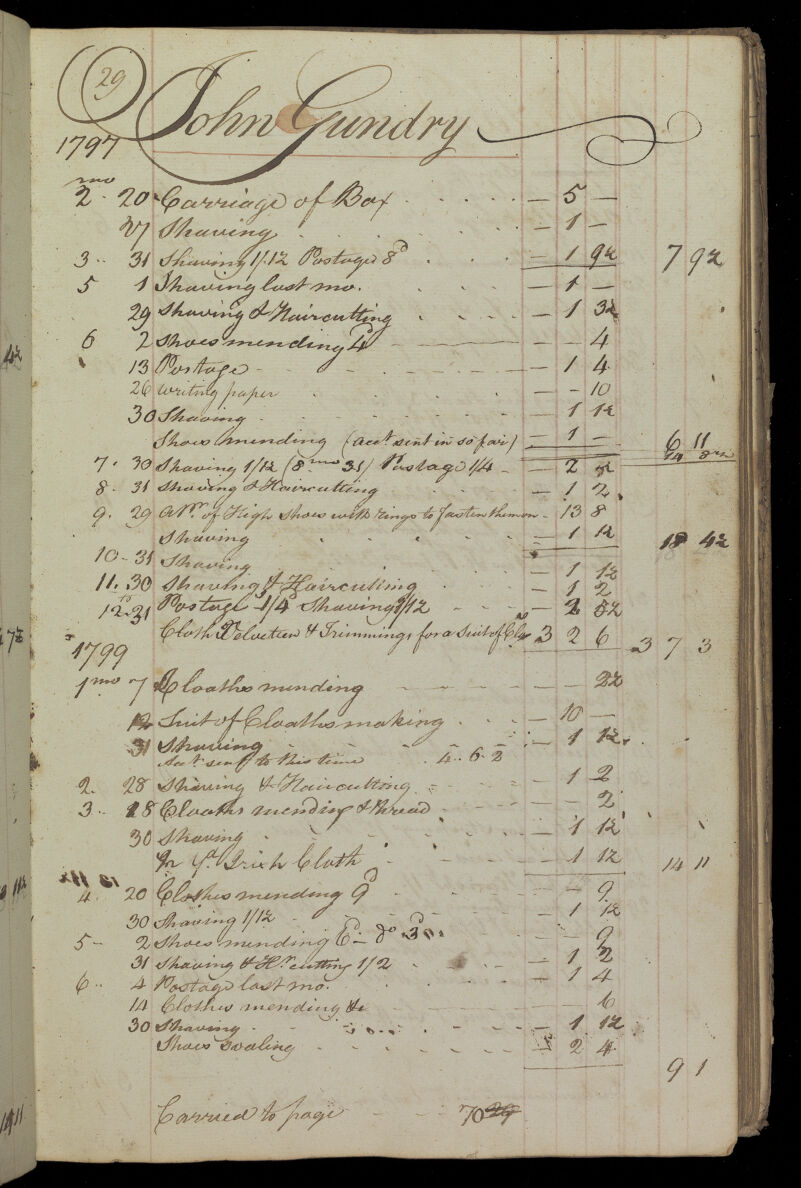 29
John Gundry
1797
mo
2 20 Carriage of Box — 5 —
27 Shaving — 1 —
3 31 Shaving 1/1½ Postage 8d — 1 9½ 7 9½
5 1 Shaving last mo. — 1 —
29 Shaving & Haircutting — 1 3½
6 2 Shoes mending 4d — — 4
13 Postage — 1 4
26 writing paper — — 10
30 Shaving — 1 1½
Shoes mending (acct. sent in so far) — 1 — 6 11
7. 30 Shaving 1/1½ (8mo 31) Postage 1/4 — 2
8. 31 Shaving & Haircutting — 1 2
9. 29 of High Shoes with rings to fasten them on — 13 8
Shaving — 1 1½ 18 4½
10 - 31 Shaving — 1 1½
11. 30 Shaving & Haircutting — 1 2
12. 31 Postage 1/4 Shaving 1/1½ — 2 5½
Cloth Velveteen & Trimmings for a Suit of 3 2 6 3 7 3
1799
1mo 7 Cloaths mending — — 2½
12 Suit of Cloaths making — 10 —
31 Shaving — 1 1½
Acct. sent to this time 4. 6. 2
2. 28 Shaving & Haircutting — 1 2
3. 28 Cloaths mending & thread — — 2
30 Shaving — 1 1½
Irish Cloth — 1 1½ 14 11
4. 20 Clothes mending 9d — — 9
30 Shaving 1/1½ — 1 1½
5 - 2 Shoes mending 6d - do 3d — — 9
31 Shaving & Hr. cutting 1/2 — 1 2
6. 4 Postage last mo. — 1 4
14 Clothes mending &c — — 6
30 Shaving — 1 1½
Shoes soaling — 2 4
9 1
Carried to page 70